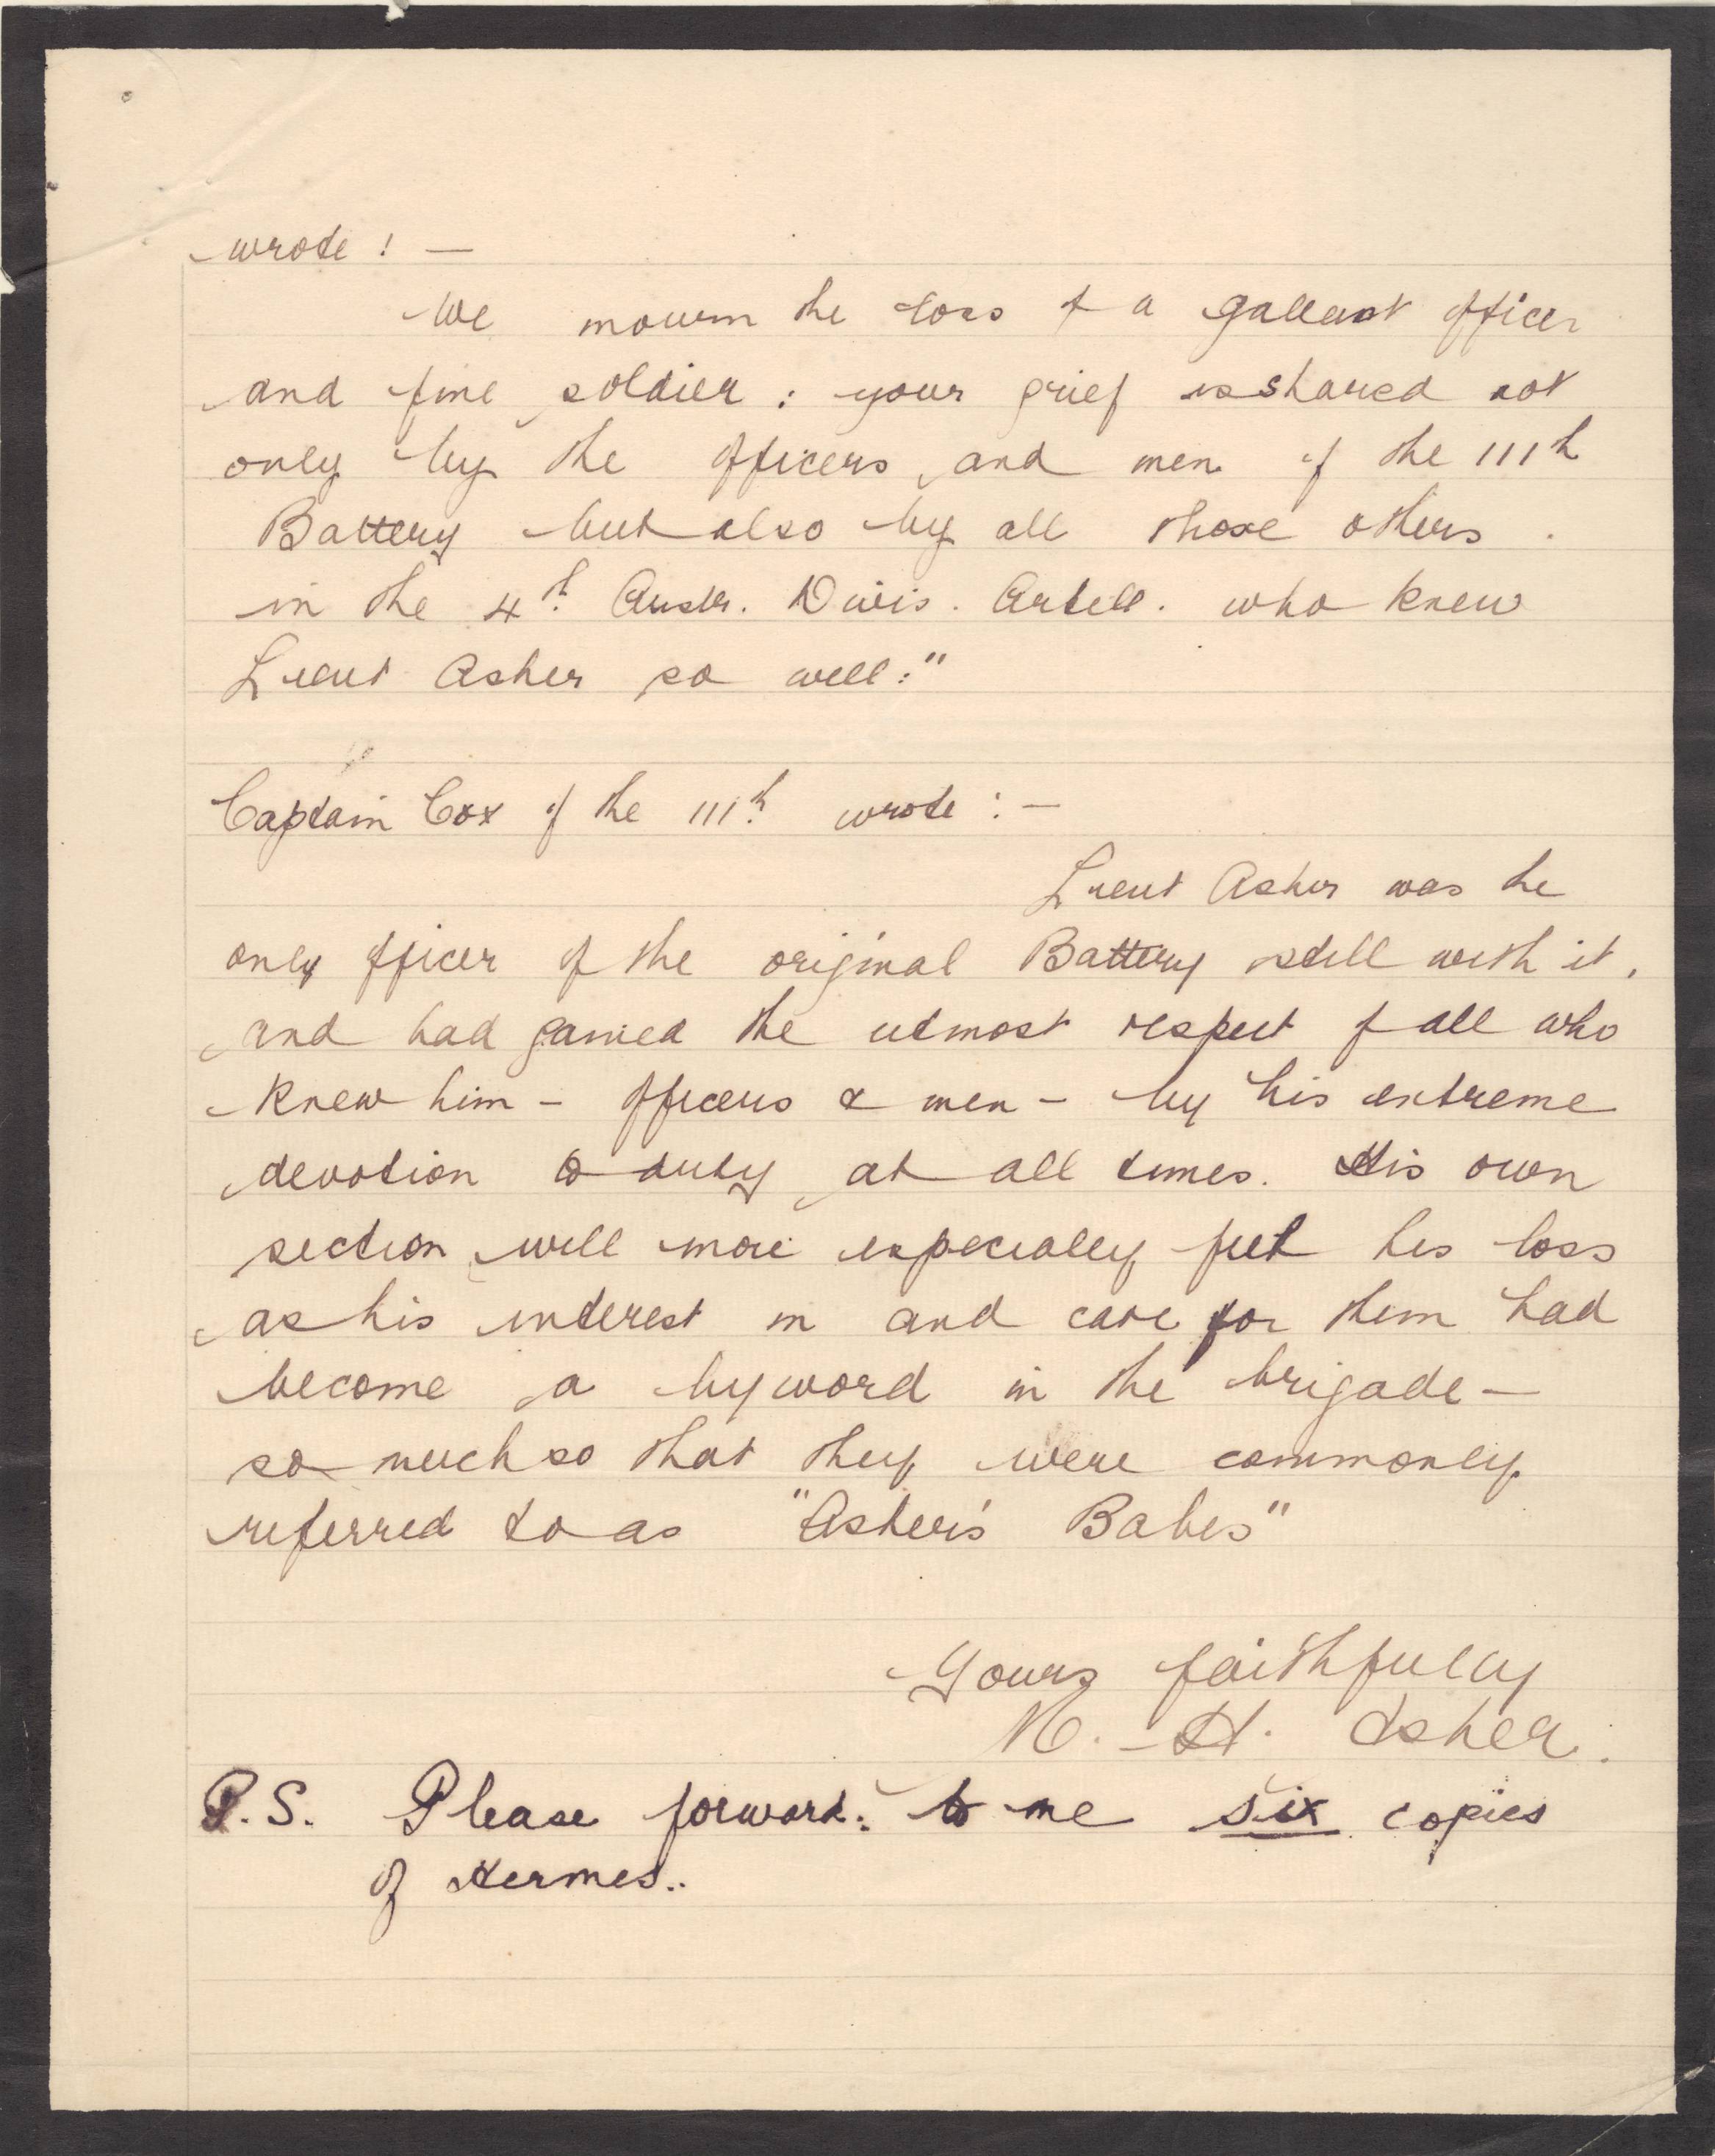 wrote : —
We mourn the loss of a gallant officer
and fine soldier : your grief is shared not
only by the officers and men of the 111th
Battery but also by all those others
in the 4th Austr. Divis. Artill. who knew
Lieut Asher so well."
Captain Cox of the 111th wrote : —
Lieut Asher was the
only officer of the original Battery still with it,
and had gained the utmost respect of all who
knew him - officers & men - by his extreme
devotion to duty at all times. His own
section will more especially feel his loss
as his interest in and care for them had
become a byword in the brigade —
so much so that they were commonly
referred to as "Asher's Babes"
Yours faithfully
H. Asher.
P.S. Please forward to me six copies
of Hermes..